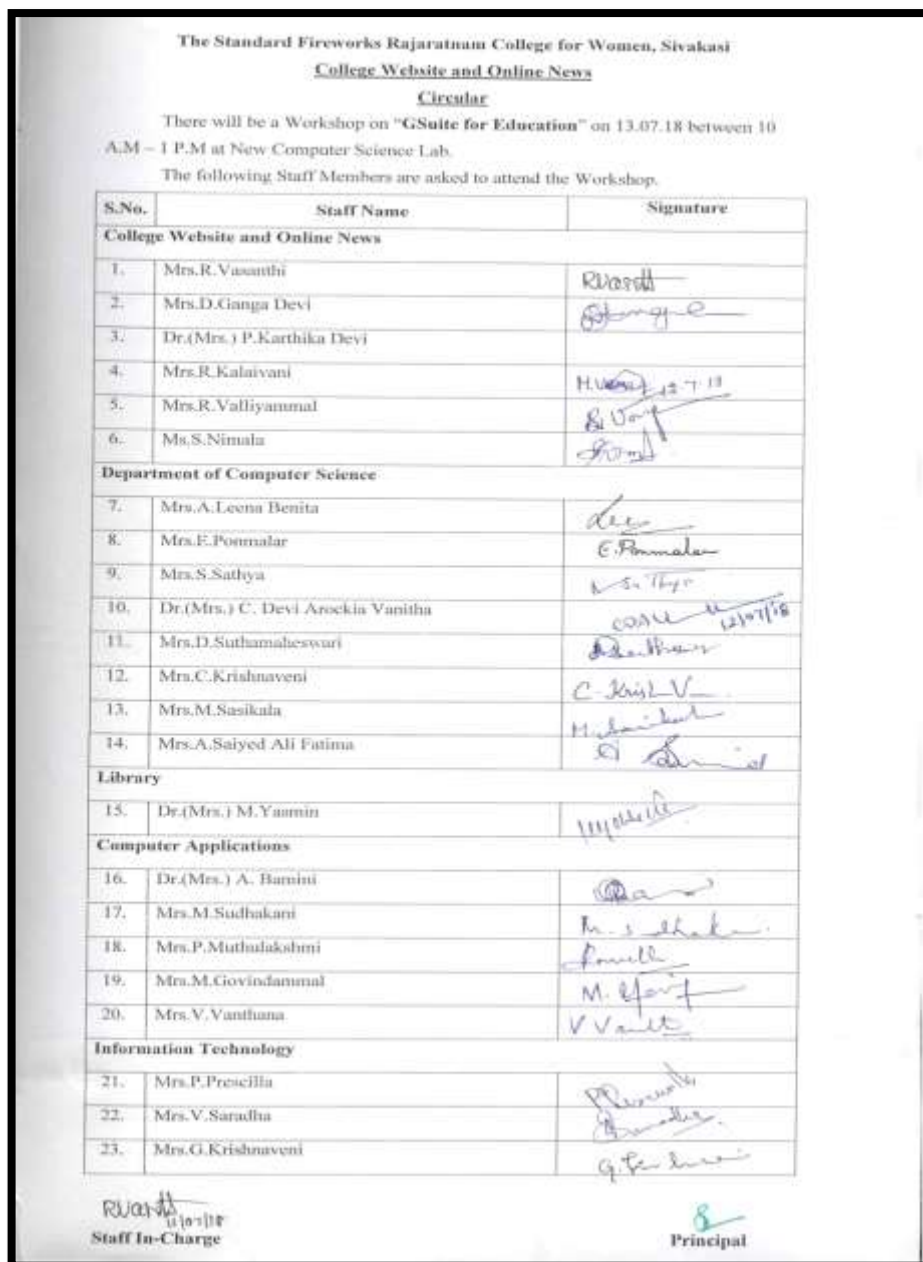 The Standard Fireworks Rajaratnam College for Women, Sivakasi
College Website and Online News
Circular
There will be a Workshop on "GSuite for Education" on 13.07.18 between 10
A.M – 1 P.M at New Computer Science Lab.
The following Staff Members are asked to attend the Workshop.
S.No. Staff Name Signature
College Website and Online News
1. Mrs.R.Vasanthi
2. Mrs.D.Ganga Devi
3. Dr.(Mrs.) P.Karthika Devi
4. Mrs.R.Kalaivani
5. Mrs.R.Valliyammal
6. Ms.S.Nimala
Department of Computer Science
7. Mrs.A.Leena Benita
8. Mrs.E.Ponmalar E.Ponmalar
9. Mrs.S.Sathya
10. Dr.(Mrs.) C. Devi Arockia Vanitha 12/07/18
11. Mrs.D.Suthamaheswari
12. Mrs.C.Krishnaveni
13. Mrs.M.Sasikala
14. Mrs.A.Saiyed Ali Fatima
Library
15. Dr.(Mrs.) M.Yasmin
Computer Applications
16. Dr.(Mrs.) A. Bamini
17. Mrs.M.Sudhakani
18. Mrs.P.Muthulakshmi
19. Mrs.M.Govindammal
20. Mrs.V.Vanthana
Information Technology
21. Mrs.P.Prescilla
22. Mrs.V.Saradha
23. Mrs.G.Krishnaveni
Staff In-Charge Principal